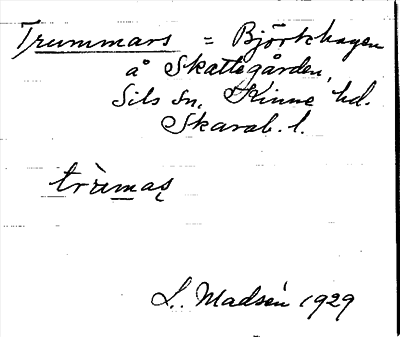 Trummars = Björkhagen
å Skattegården,
Sils sn, Kinne hd.
Skarab. l.
tràmas
L. Madsén 1929